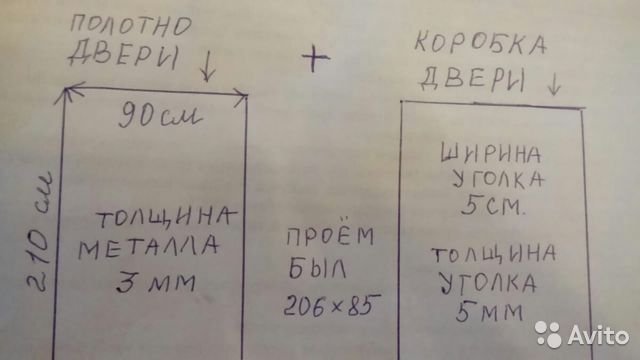 ПОЛОТНО
ДВЕРИ
+
КОРОБКА
ДВЕРИ
90 см
210 см
ТОЛЩИНА
МЕТАЛЛА
3 мм
ПРОЁМ
БЫЛ
206×85
ШИРИНА
УГОЛКА
5 СМ.
ТОЛЩИНА
УГОЛКА
5 ММ
Avito